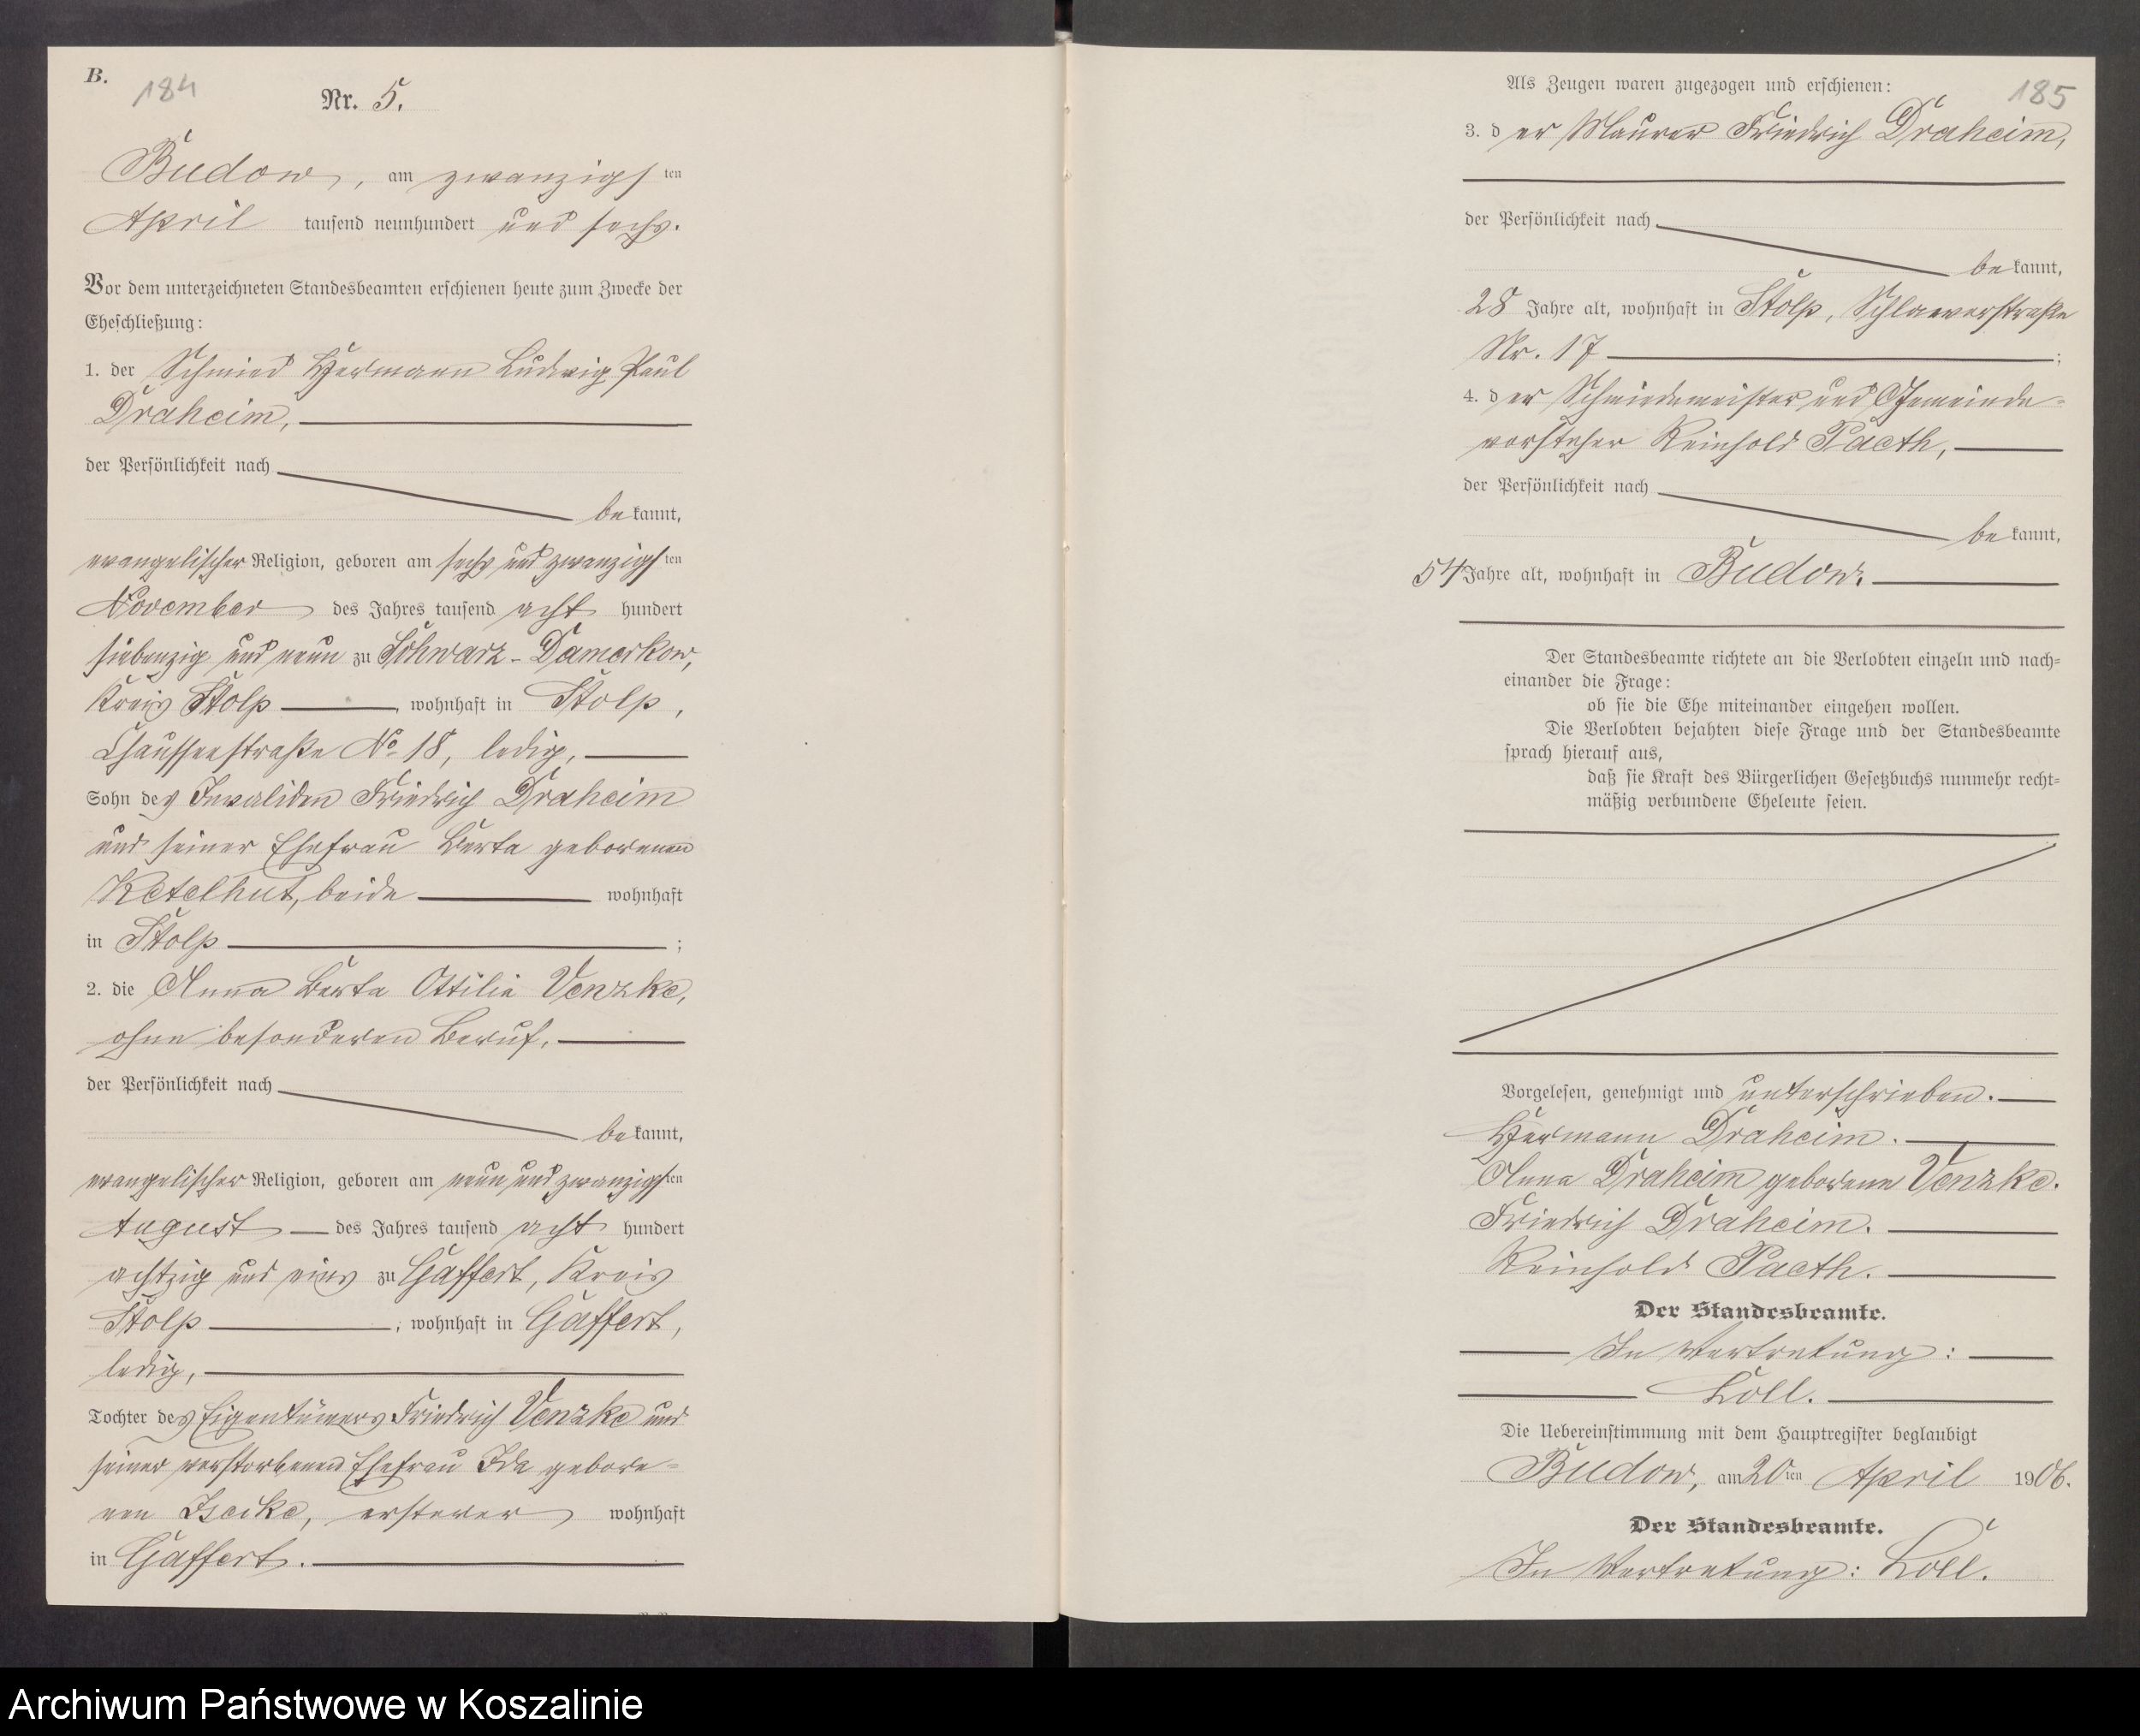 B.
184
Nr. 5.
Budow, am zwanzigsten
April tausend neunhundert und sechs.
Vor dem unterzeichneten Standesbeamten erschienen heute zum Zwecke der
Eheschließung:
1. der Schmied Hermann Ludwig Paul
Draheim,
der Persönlichkeit nach
bekannt,
evangelischer Religion, geboren am sechs und zwanzigsten
November des Jahres tausend acht hundert
siebenzig und neun zu Schwarz-Damerkow,
Kreis Stolp, wohnhaft in Stolp,
Chausseestraße No 18, ledig,
Sohn des Invaliden Friedrich Draheim
und seiner Ehefrau Berta geborenen
Ketelhut, beide wohnhaft
in Stolp;
2. die Anna Berta Ottilie Venzke,
ohne besonderen Beruf,
der Persönlichkeit nach
bekannt,
evangelischer Religion, geboren am neun und zwanzigsten
August des Jahres tausend acht hundert
achtzig und eins zu Gaffert, Kreis
Stolp, wohnhaft in Gaffert,
ledig,
Tochter des Eigentümers Friedrich Venzke und
seiner verstorbenen Ehefrau Ida gebore-
nen Iseike, ersterer wohnhaft
in Gaffert.
185
Als Zeugen waren zugezogen und erschienen:
3. der Maurer Friedrich Draheim,
der Persönlichkeit nach
bekannt,
28 Jahre alt, wohnhaft in Stolp, Schlawerstraße
Nr. 17;
4. der Schmiedemeister und Gemeinde-
vorsteher Reinhold Paeth,
der Persönlichkeit nach
bekannt,
54 Jahre alt, wohnhaft in Budow.
Der Standesbeamte richtete an die Verlobten einzeln und nach-
einander die Frage:
ob sie die Ehe miteinander eingehen wollen.
Die Verlobten bejahten diese Frage und der Standesbeamte
sprach hierauf aus,
daß sie Kraft des Bürgerlichen Gesetzbuchs nunmehr recht-
mäßig verbundene Eheleute seien.
Vorgelesen, genehmigt und unterschrieben.
Hermann Draheim.
Anna Draheim geborene Venzke.
Friedrich Draheim.
Reinhold Paeth.
Der Standesbeamte.
In Vertretung:
Loll.
Die Uebereinstimmung mit dem Hauptregister beglaubigt
Budow, am 20ten April 1906.
Der Standesbeamte.
In Vertretung: Loll.
Archiwum Państwowe w Koszalinie